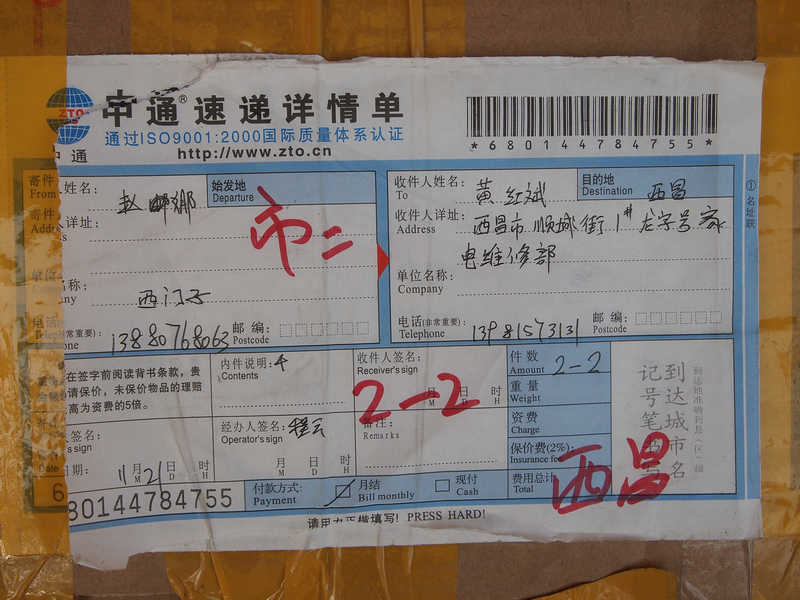 ZTO
中通
中通®速递详情单
通过ISO9001:2000国际质量体系认证
http://www.zto.cn
*680144784755*
寄件人姓名:
From
始发地
Departure
市二
收件人姓名:
To
黄红斌
目的地
Destination
西昌
①名址联
收件人详址:
Address
西昌市顺城街1#龙字号家
电维修部
单位名称:
西门子
单位名称:
Company
电话(非常重要):
13880768063
邮编:
Postcode
电话(非常重要):
Telephone
13981573131
邮编:
Postcode
在签字前阅读背书条款,贵
请保价,未保价物品的理赔
高为资费的5倍。
内件说明:
Contents
收件人签名:
Receiver's sign
M D H
月 日 时
2-2
件数
Amount
2-2
重量
Weight
资费
Charge
保价费(2%):
Insurance fee
费用总计:
Total
西昌
到达城市名
记号笔
人签名:
s sign
经办人签名:
Operator's sign
备注:
Remarks
Date
日期:
11月21日 时
M D H
月 日 时
M D H
80144784755
付款方式:
Payment
月结
Bill monthly
现付
Cash
请用力正楷填写! PRESS HARD!